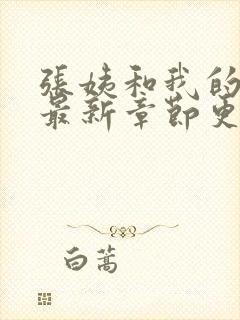 張姨和我的
最新章節更
白蒿